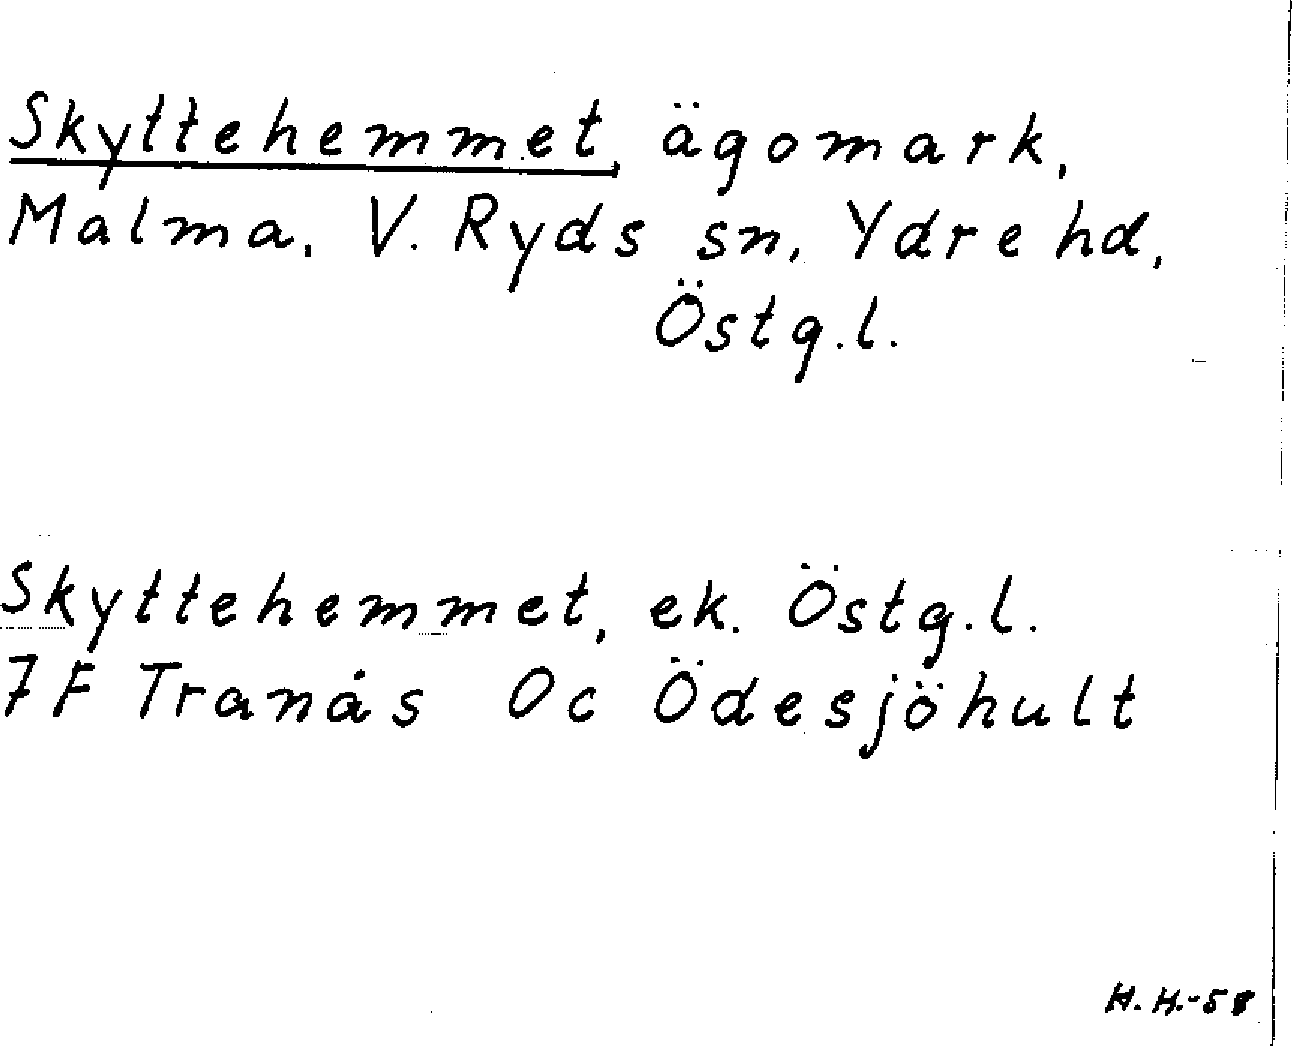 Skyttehemmet, ägomark,
Malma, V. Ryds sn, Ydre hd,
Östg.l.
Skyttehemmet, ek. Östg.l.
7F Tranås 0c Ödesjöhult
H.H.-58